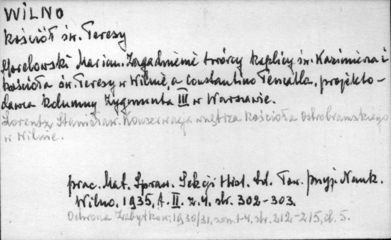 WILNO
kościół św. Teresy
Morelowski Marian. Zagadnienie twórcy kaplicy św. Kazimierza i
kościoła św. Teresy w Wilnie, a Constantino Tencalla, projekto-
dawca kolumny Zygmunta III w Warszawie.
Lorentz Stanisław. Konserwacja wnętrza kościoła Ostrobramskiego
w Wilnie.
prac. Mat. Spraw. Sekcji Hist. Szt. Tow. Przyj. Nauk.
Wilno, 1935, t. II. z. 4. str. 302-303.
Ochrona Zabytków, 1930/31, 1-4. str. 212-215, il. 5.